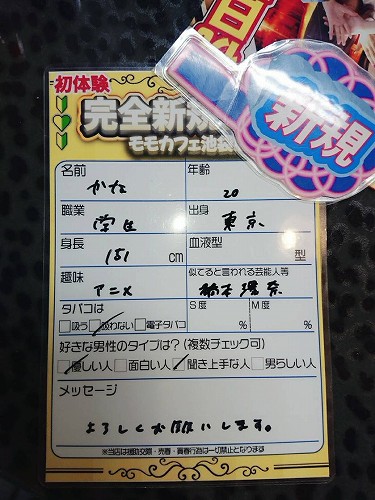 初体験
完全新規
モモカフェ池袋
新規
名前
かな
年齢
20
職業
学生
出身
東京
身長
151
cm
血液型
型
趣味
アニメ
似てると言われる芸能人等
橋本環奈
タバコは
□吸う ☑吸わない □電子タバコ
S度
%
M度
%
好きな男性のタイプは?(複数チェック可)
☑優しい人 □面白い人 ☑聞き上手な人 □男らしい人
メッセージ
よろしくお願いします。
※当店は援助交際・売春・買春行為は一切禁止となります